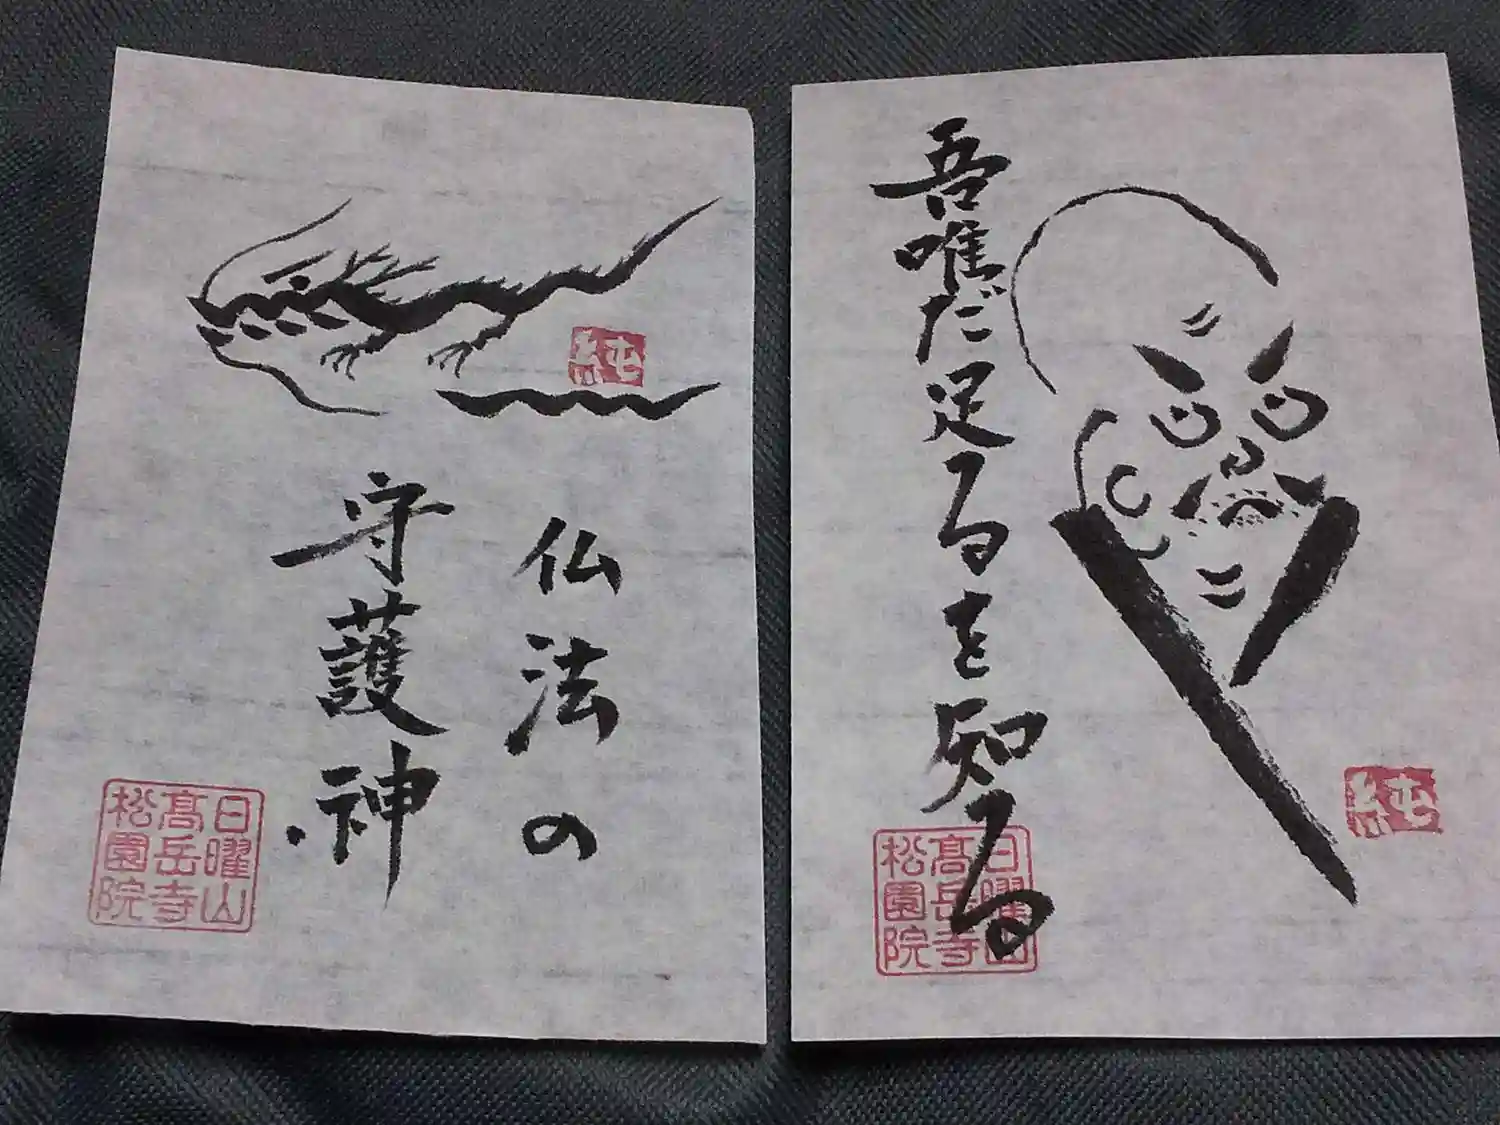 純
仏法の
守護神
日曜山
高岳寺
松園院
吾唯だ足るを知る
純
日曜山
高岳寺
松園院